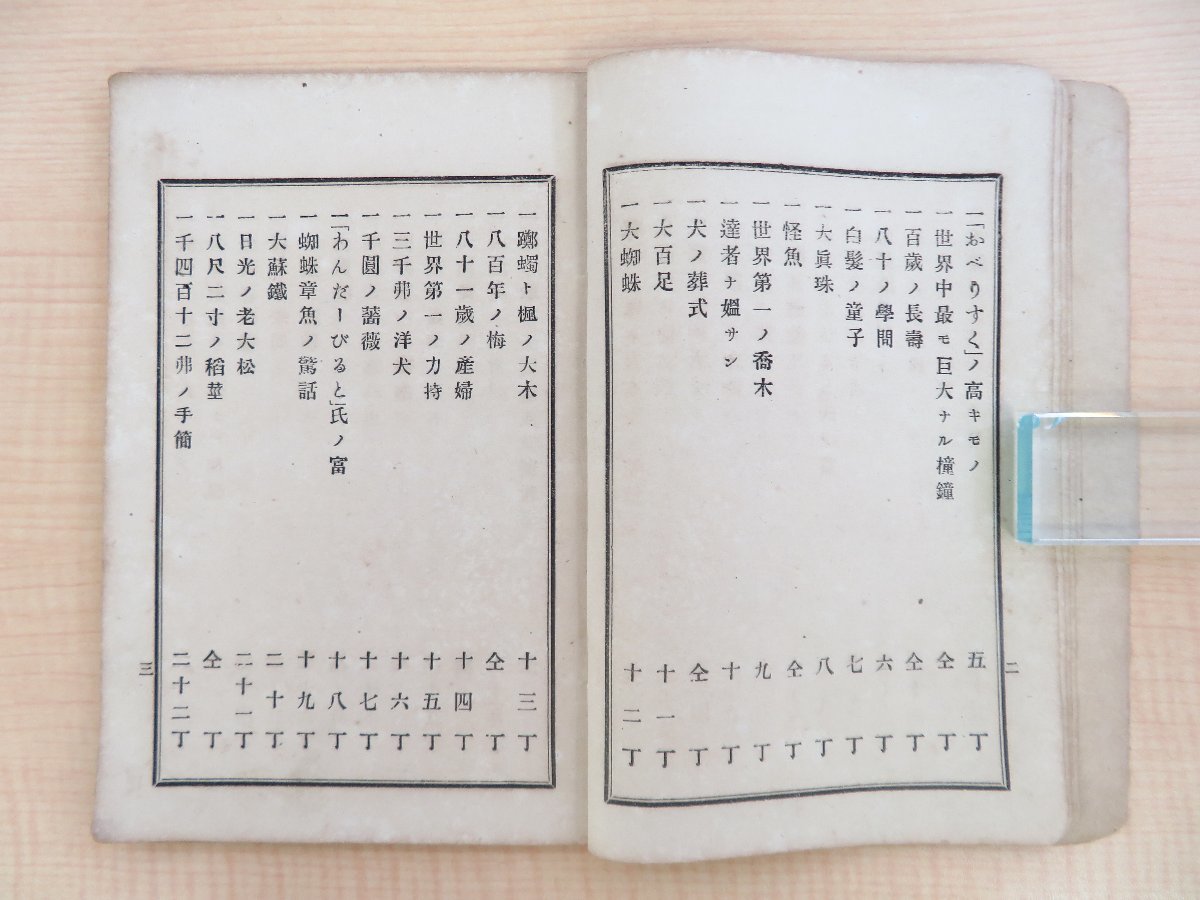 一「おべりすく」ノ高キモノ 五丁
一世界中最モ巨大ナル撞鐘 仝丁
一百歳ノ長壽 仝丁
一八十ノ學問 六丁
一白髮ノ童子 七丁
一大眞珠 八丁
一怪魚 仝丁
一世界第一ノ喬木 九丁
一達者ナ媼サン 十丁
一犬ノ葬式 仝丁
一大百足 十一丁
一大蜘蛛 十二丁
二
一躑躅ト楓ノ大木 十三丁
一八百年ノ梅 仝丁
一八十一歳ノ產婦 十四丁
一世界第一ノ力持 十五丁
一三千弗ノ洋犬 十六丁
一千圓ノ薔薇 十七丁
一「わんだーびると」氏ノ富 十八丁
一蜘蛛章魚ノ驚話 十九丁
一大蘇鐵 二十丁
一日光ノ老大松 二十一丁
一八尺二寸ノ稻莖 仝丁
一千四百十二弗ノ手簡 二十二丁
三